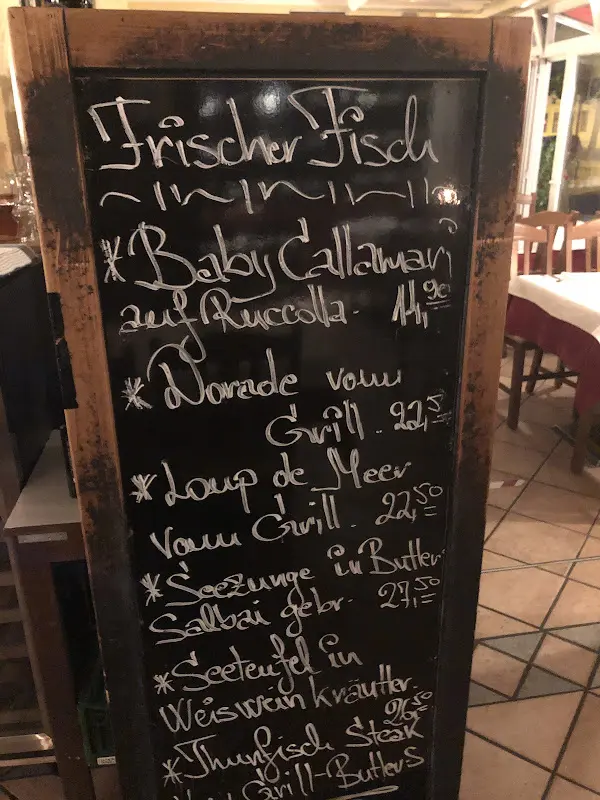 Frischer Fisch
* Baby Callamari
auf Ruccolla. 14,90
* Dorade vom
Grill. 22,5
* Loup de Meer
vom Grill. 22,50
* Seezunge in Butter
Salbai gebr. 27,50
* Seeteufel in
Weiswein kräutter.
26,50
* Thunfisch Steak
Grill-Butter S